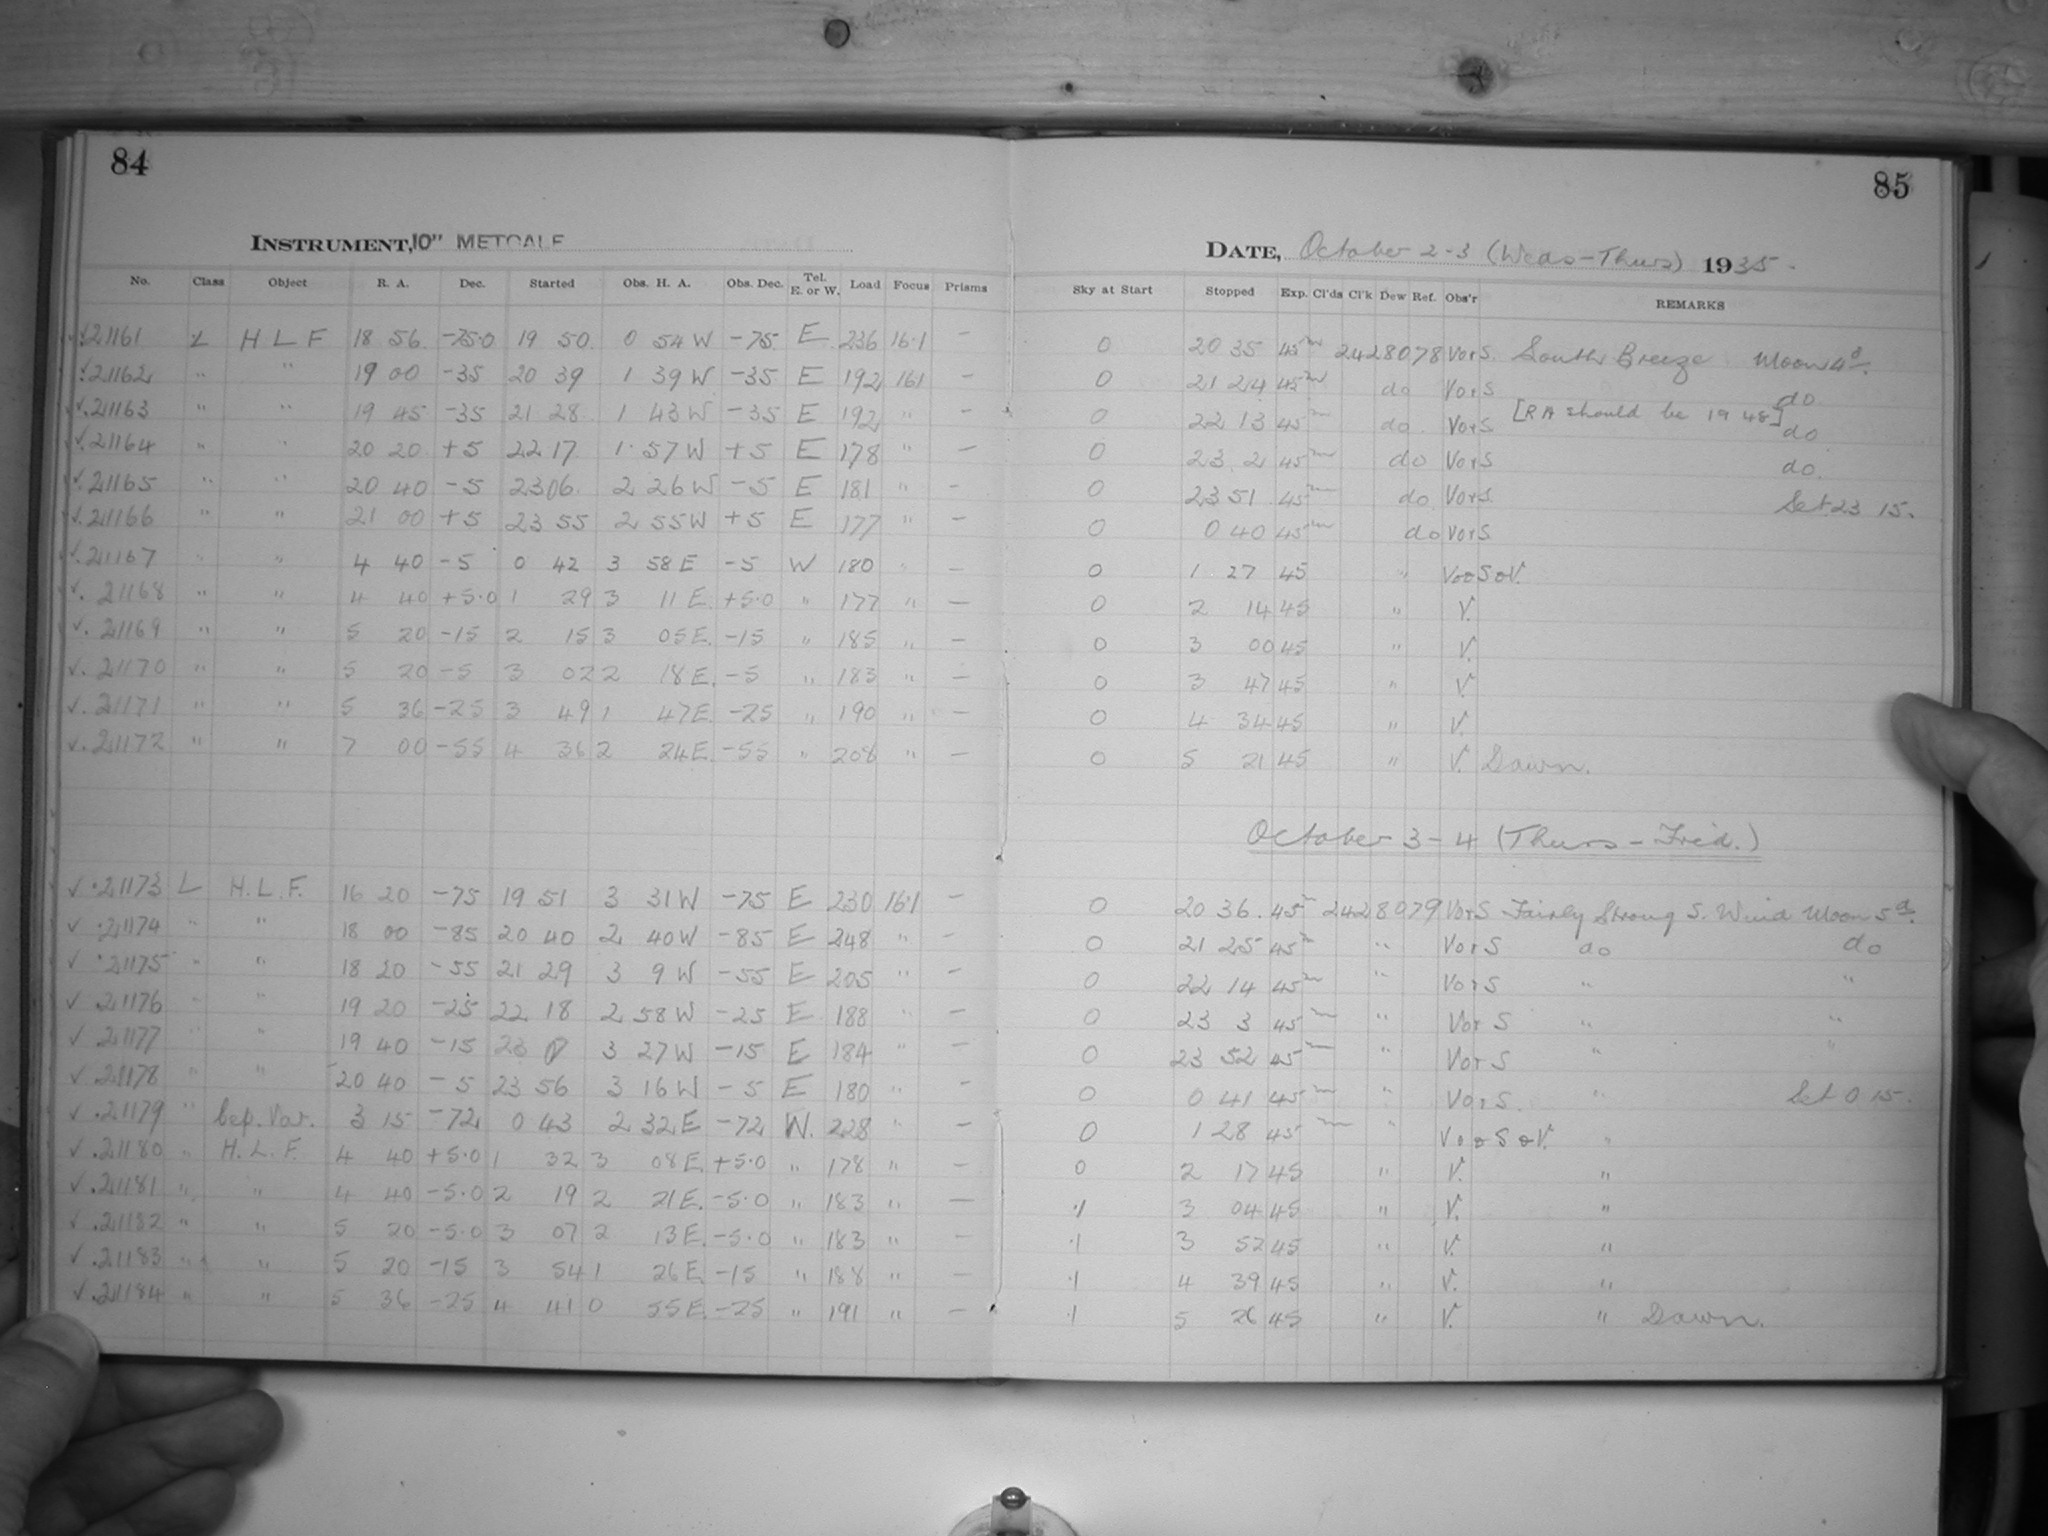 84
85
INSTRUMENT, 10" METCALF
DATE, October 2-3 (Weds-Thurs) 1935.
No. Class Object R. A. Dec. Started Obs. H. A. Obs. Dec. Tel. E. or W. Load Focus Prisms Sky at Start Stopped Exp. Cl'ds Cl'k Dew Ref. Obs'r REMARKS
21161 L H L F 18 56 -75.0 19 50 0 54 W -75 E 236 16.1 - 0 20 35 45m 2428078 VorS South Breeze Moon 4d.
21162 " " 19 00 -35 20 39 1 39 W -35 E 192 161 - 0 21 24 45m do VorS do
21163 " " 19 45 -35 21 28 1 43 W -35 E 192 " - 0 22 13 45m do VorS [RA should be 19 48] do
21164 " " 20 20 +5 22 17 1 57 W +5 E 178 " - 0 23 2 45m do VorS do.
21165 " " 20 40 -5 23 06 2 26 W -5 E 181 " - 0 23 51 45m do VorS Set 23 15.
21166 " " 21 00 +5 23 55 2 55 W +5 E 177 " - 0 0 40 45m do VorS
21167 " " 4 40 -5 0 42 3 58 E -5 W 180 " - 0 1 27 45 "
21168 " " 4 40 +5.0 1 29 3 11 E. +5.0 " 177 " - 0 2 14 45 " V.
21169 " " 5 20 -15 2 15 3 05 E. -15 " 185 " - 0 3 00 45 " V.
21170 " " 5 20 -5 3 02 2 18 E. -5 " 183 " - 0 3 47 45 " V.
21171 " " 5 36 -25 3 49 1 47 E. -25 " 190 " - 0 4 34 45 " V.
21172 " " 7 00 -55 4 36 2 24 E. -55 " 208 " - 0 5 21 45 " V. Dawn.
October 3-4 (Thurs-Frid.)
21173 L H.L.F. 16 20 -75 19 51 3 31 W -75 E 230 16.1 - 0 20 36 45m 2428079 VorS Fairly Strong S. Wind Moon 5d.
21174 " " 18 00 -85 20 40 2 40 W -85 E 248 " - 0 21 25 45m " VorS do do
21175 " " 18 20 -55 21 29 3 9 W -55 E 205 " - 0 22 14 45m " VorS " "
21176 " " 19 20 -25 22 18 2 58 W -25 E 188 " - 0 23 3 45m " VorS " "
21177 " " 19 40 -15 23 3 27 W -15 E 184 " - 0 23 52 45m " VorS " "
21178 " " 20 40 -5 23 56 3 16 W -5 E 180 " - 0 0 41 45m " VorS. " Set 0 15.
21179 " Cep. Var. 3 15 -72 0 43 2 32 E -72 W. 228 " - 0 1 28 45m " "
21180 " H.L.F. 4 40 +5.0 1 32 3 08 E. +5.0 " 178 " - 0 2 17 45 " V. "
21181 " " 4 40 -5.0 2 19 2 21 E. -5.0 " 183 " - .1 3 04 45 " V. "
21182 " " 5 20 -5.0 3 07 2 13 E. -5.0 " 183 " - .1 3 52 45 " V. "
21183 " " 5 20 -15 3 54 1 26 E. -15 " 188 " - .1 4 39 45 " V. "
21184 " " 5 36 -25 4 41 0 55 E. -25 " 191 " - .1 5 26 45 " V. " Dawn.